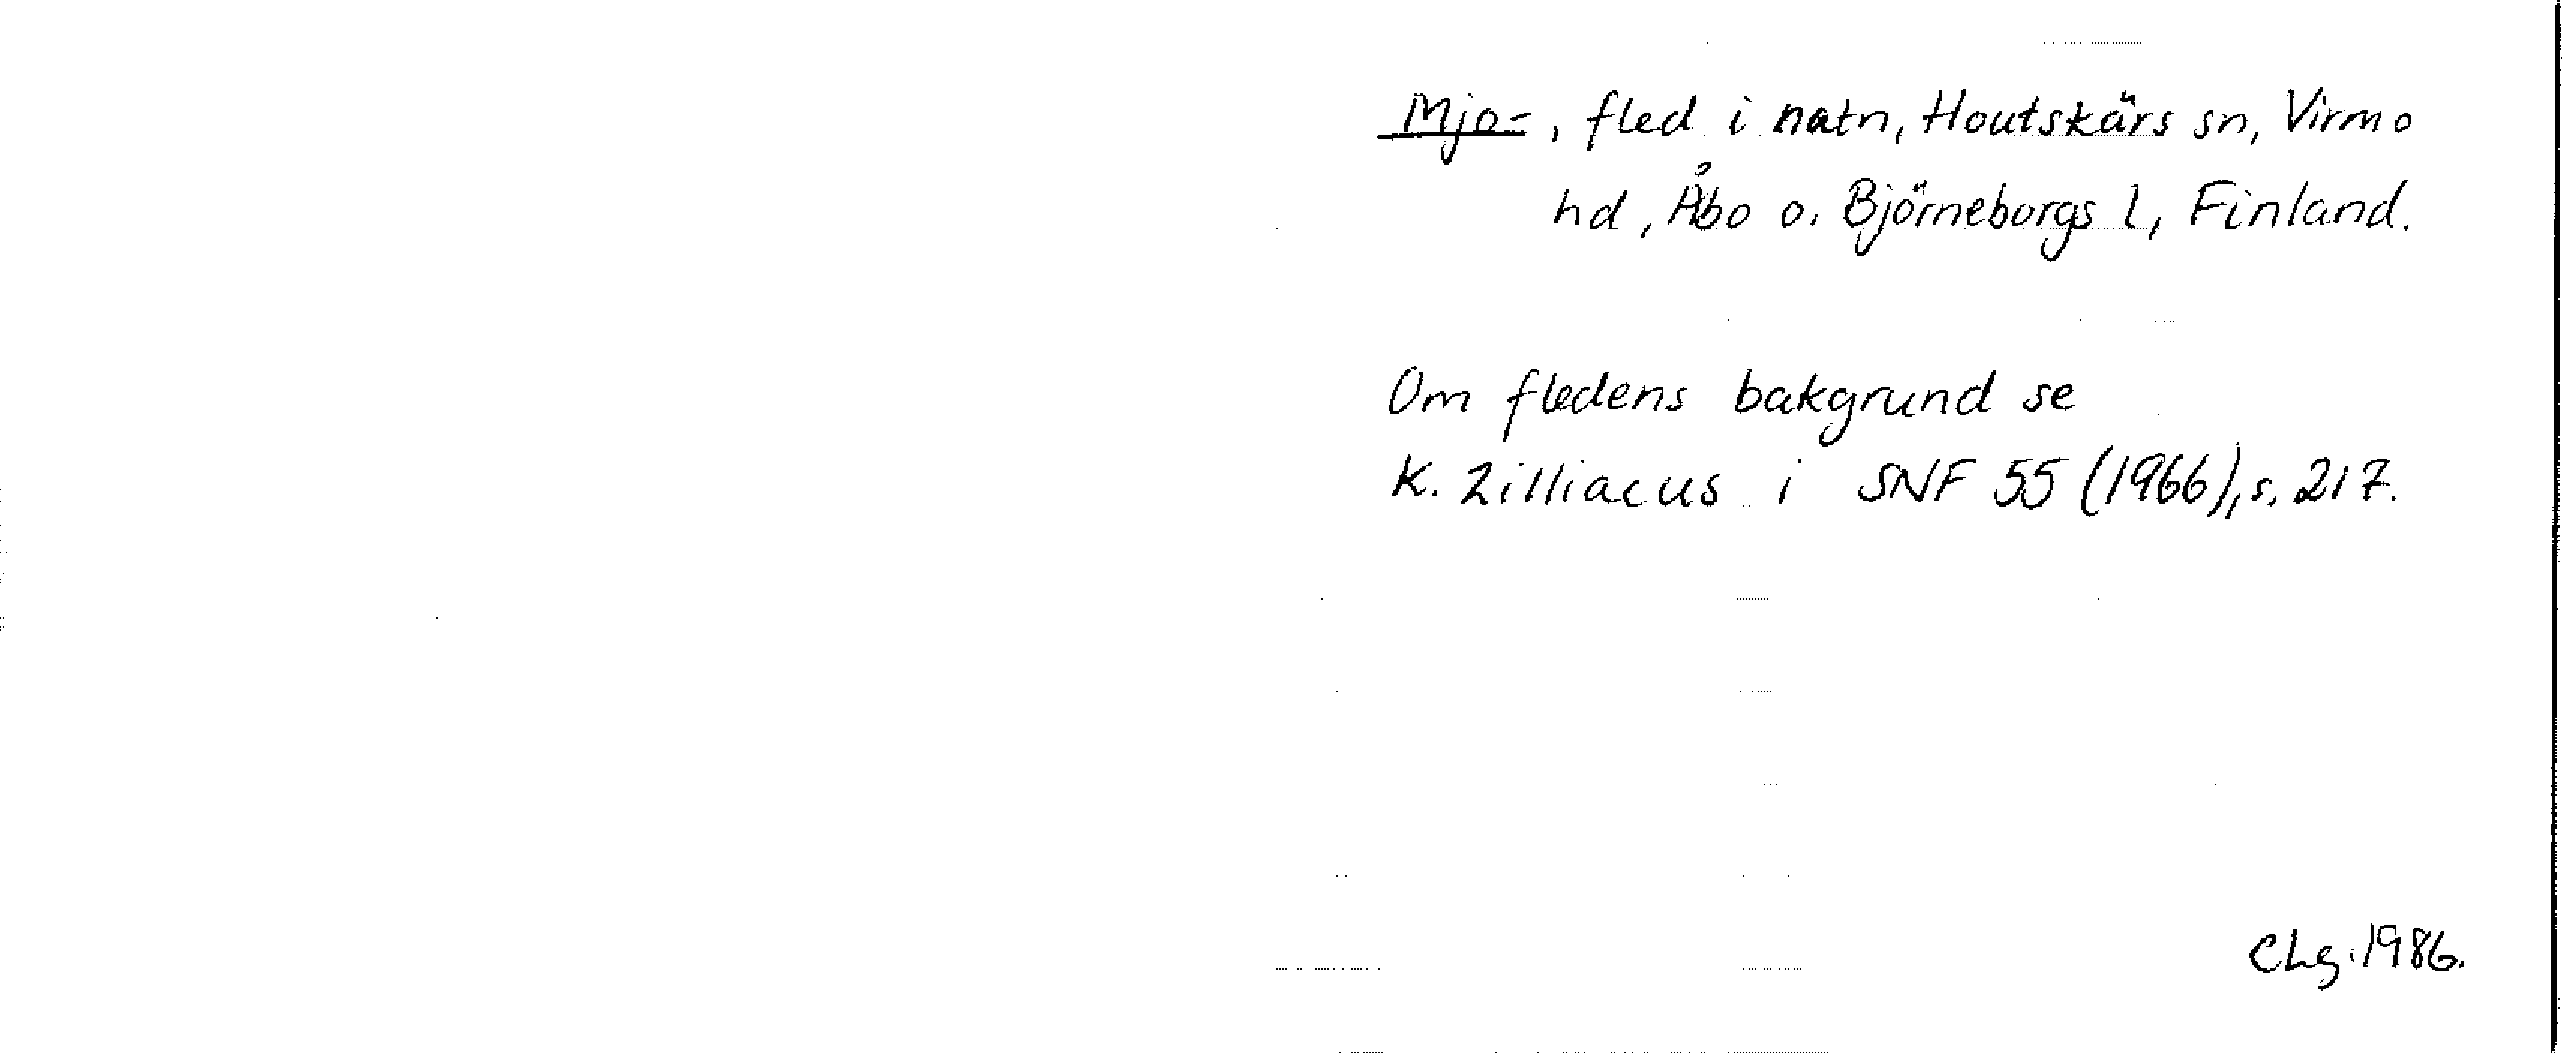 Mjo-, fled i natn, Houtskärs sn, Virmo
hd, Åbo o. Björneborgs l, Finland.
Om fledens bakgrund se
K. Zilliacus i SNF 55 (1966), s. 217.
CLg. 1986.